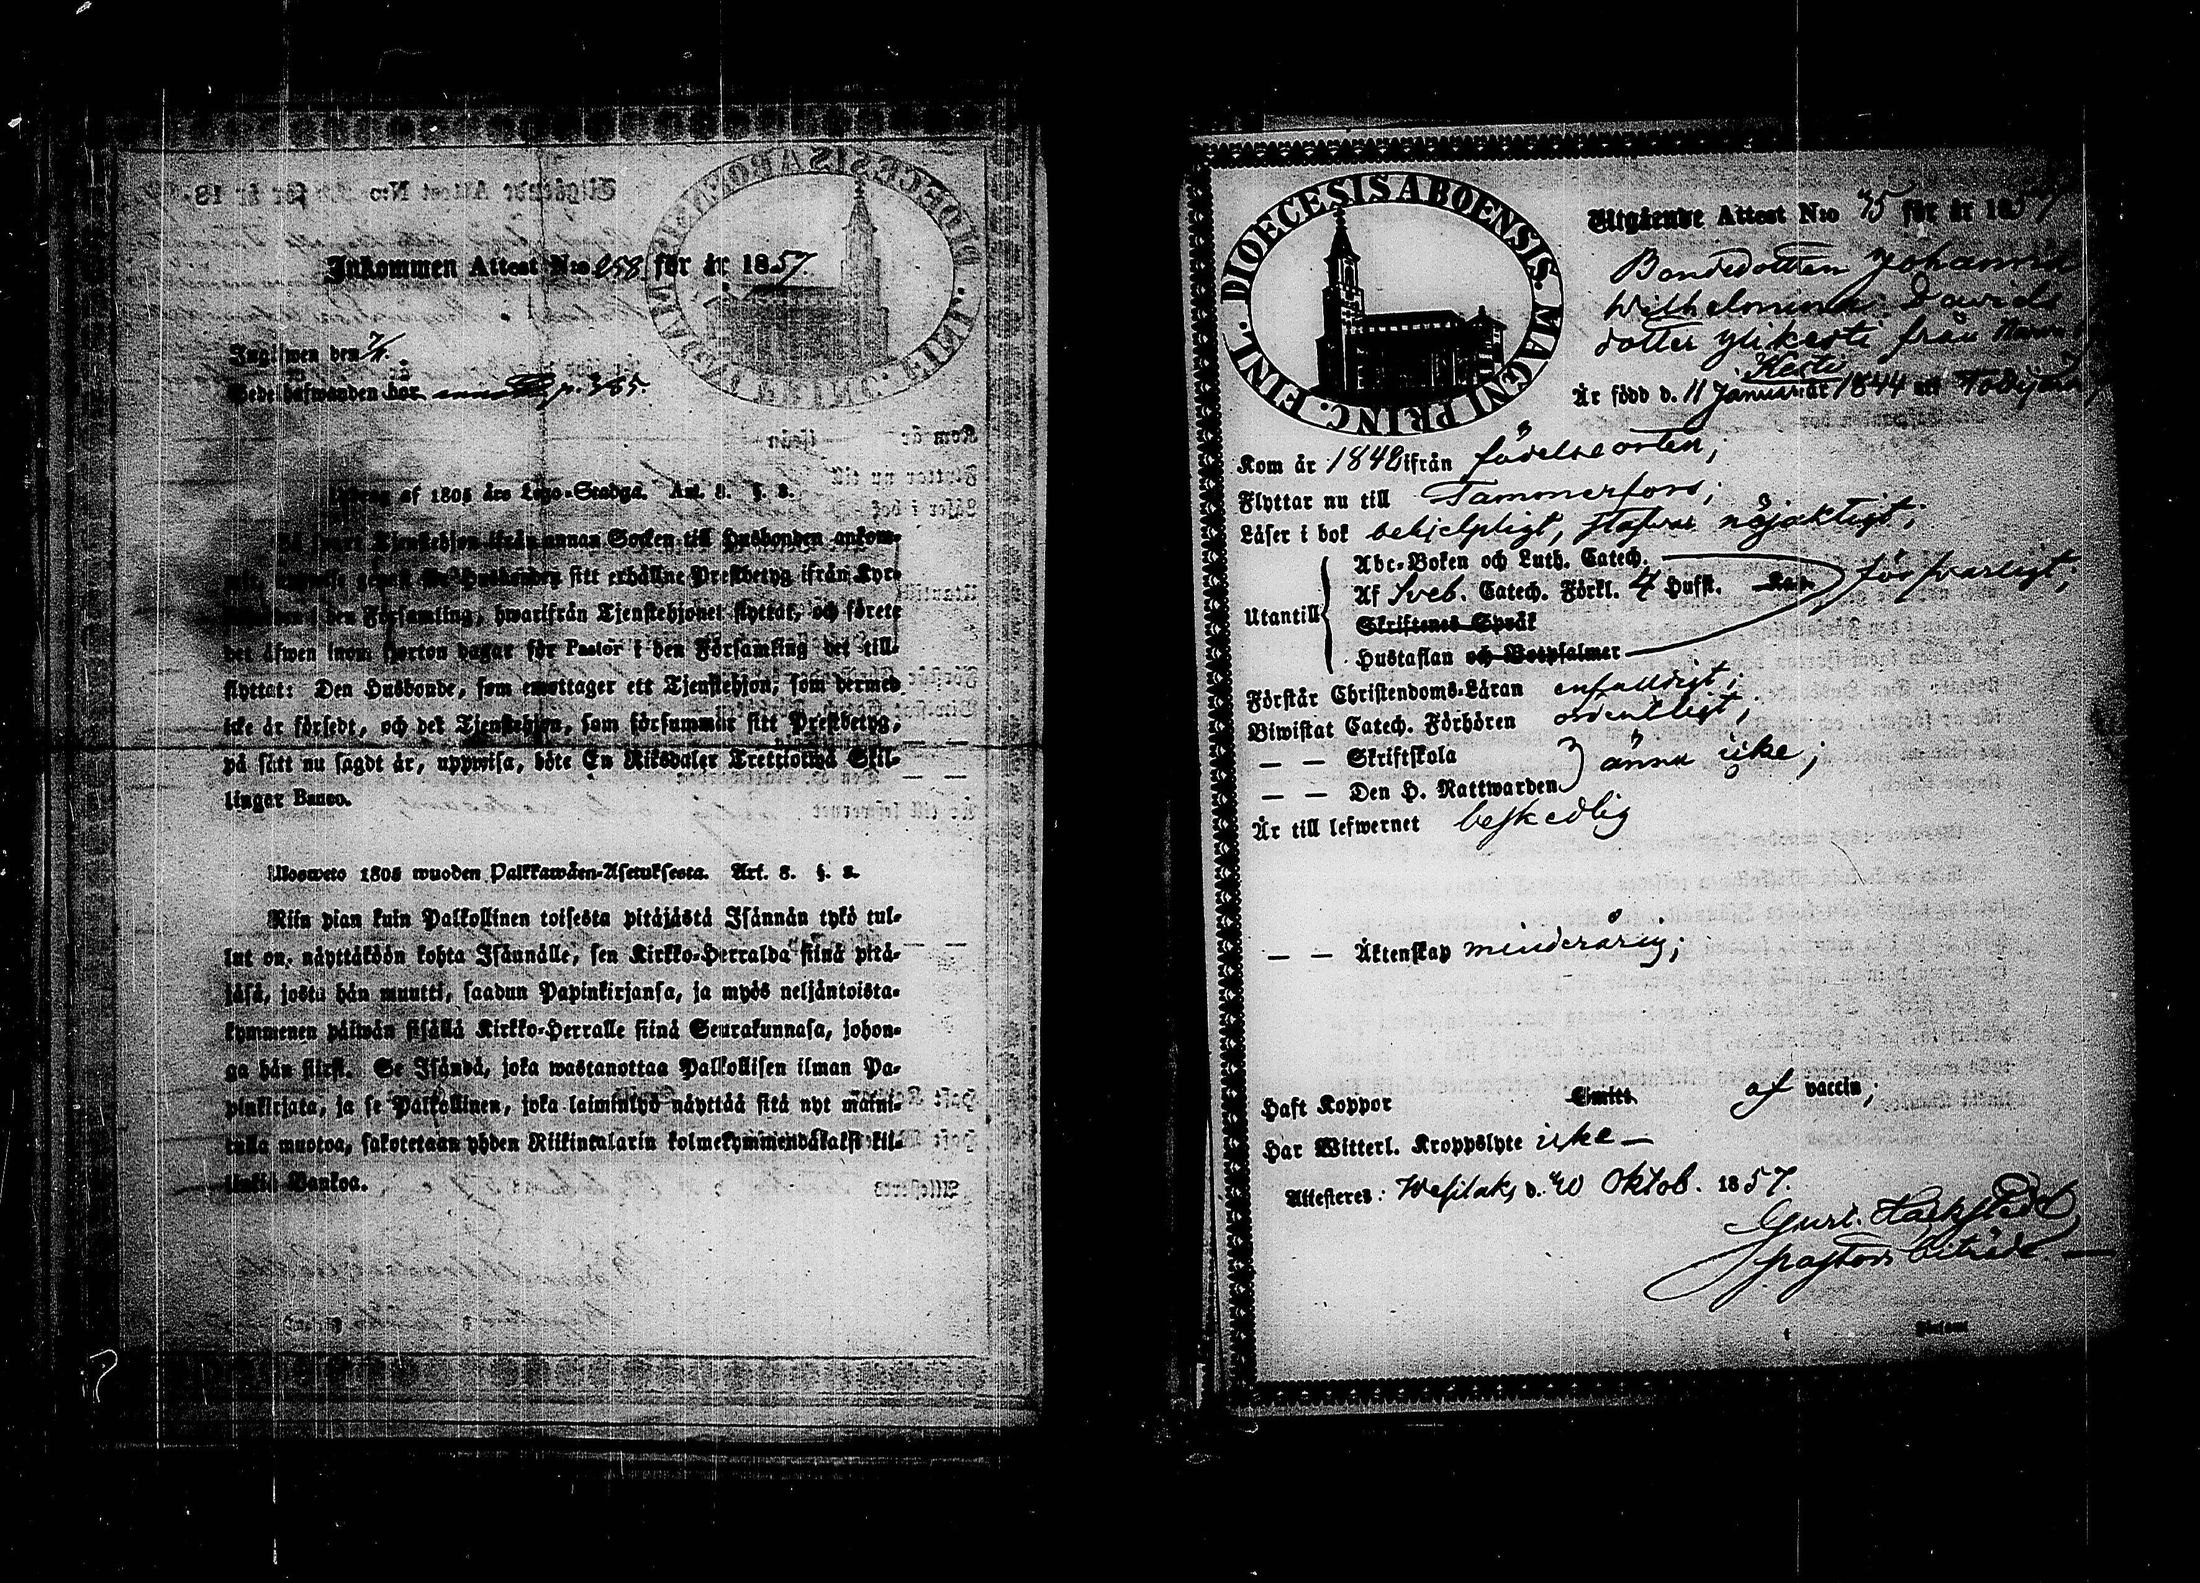 Inkommen Attest N:o 258 för år 1857.
Ingifwen den 7/11.
Bede hafwanden bor p. 365.
Utdrag af 1805 års Lego-Stadga. Art. 8. §. 2.
Så snart Tjenstehjon ifrån annan Socken till Husbonden ankom-
mit, uppwise genast för Husbonden sitt erhållne Prestbetyg ifrån Kyrko-
herden i den Församling, hwarifrån Tjenstehjonet flyttat, och förete
det äfwen inom fjorton dagar för Pastor i den Församling det till-
flyttat: Den Husbonde, som emottager ett Tjenstehjon, som dermed
icke är försedt, och det Tjenstehjon, som försummar sitt Prestbetyg,
på sätt nu sagdt är, uppwisa, böte En Riksdaler Trettiotwå Skil-
lingar Banco.
Ulosweto 1805 wuoden Palkkawäen-Asetuksesta. Art. 8. §. 2.
Niin pian kuin Palkollinen toisesta pitäjästä Isännän tykö tul-
lut on, näyttäköön kohta Isännälle, sen Kirkko-Herralda siinä pitä-
jäsä, josta hän muutti, saadun Papinkirjansa, ja myös neljäntoista-
kymmenen päiwän sisällä Kirkko-Herralle siinä Seurakunnasa, johon-
ga hän siirsi. Se Isändä, joka wastanottaa Palkollisen ilman Pa-
pinkirjata, ja se Palkollinen, joka laiminlyö näyttää sitä nyt maini-
tulla muotoa, sakotetaan yhden Riikintalarin kolmekymmendäkaksi kil-
linkiä Bankoa.
DIOECESIS ABOENSIS. MAGNI PRINC. FINL.
Utgående Attest N:o 75 för år 1857
Bondedottren Johanna
Wilhelmina Davids
dotter Ylikesti från
Kesti
Är född d. 11 Januari år 1844 uti Tottijärvi
Kom år 1848 ifrån födelseorten;
Flyttar nu till Tammerfors;
Läser i bok behjelpligt, stafwar nöjaktigt;
Utantill
Abc-Boken och Luth. Catech.
Af Sveb. Catech. Förkl. 4 Hufst. Kap. försvarligt;
Skriftenes Språk
Hustaflan och Botpsalmer
Förstår Christendoms-Läran enfaldigt;
Biwistat Catech. Förhören ordentligt;
— — Skriftskola
— — Den H. Nattwarden ännu icke;
Är till lefwernet beskedlig
— — Äktenskap minderårig;
Haft Koppor Smitt. af vaccin;
Har Witterl. Kroppslyte icke —
Attesteres: Wesilaks d. 20 Oktob. 1857.